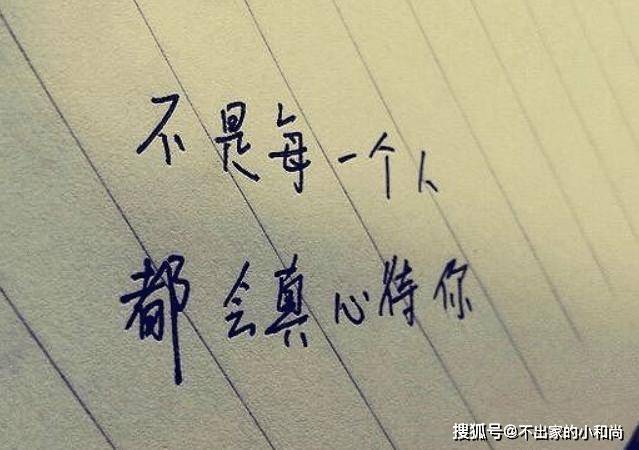 不是每一个人
都会真心待你
搜狐号@不出家的小和尚